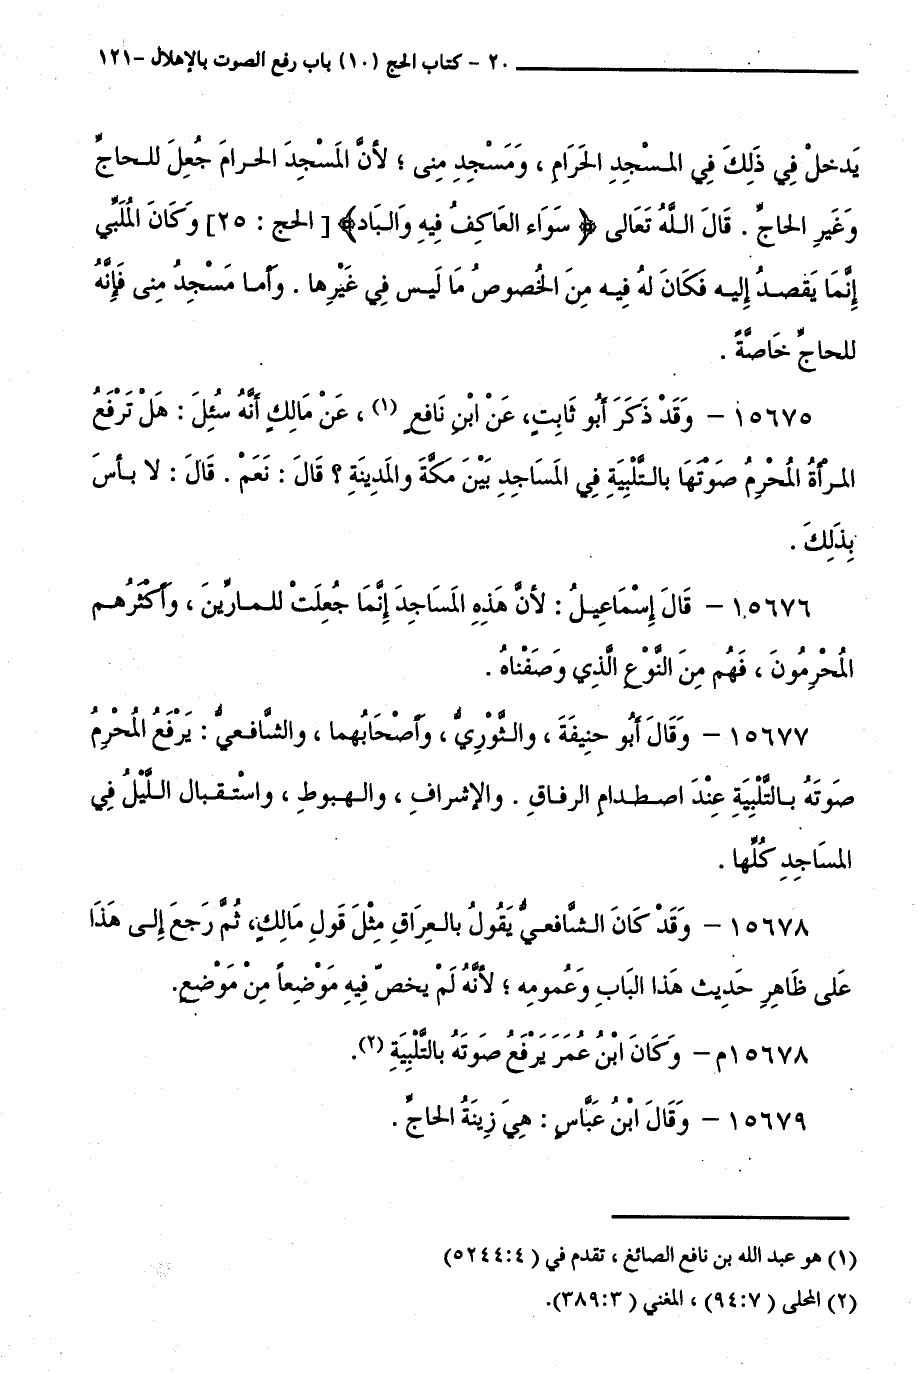 ٢٠ - كتاب الحج (١٠) باب رفع الصوت بالإهلال -١٢١
يَدخلْ فِي ذَلِكَ فِي المسْجدِ الحَرَامِ ، وَمَسْجِدِ مِنى ؛ لأنَّ المَسْجِدَ الحرامَ جُعِلَ للحاجِّ
وَغَيرِ الحاجِّ . قَالَ اللَّهُ تَعَالى ﴿ سوَاء العَاكفُ فِيهِ وَالبَاد﴾ [ الحج : ٢٥] وَكَانَ المُلَبِّي
إنَّمَا يَقصدُ إليه فَكَانَ لهُ فيه مِنَ الخُصوصُ مَا لَيس فِي غَيْرِها . وأَما مَسْجِدُ مِنى فَإنَّهُ
للحاجِّ خَاصَّةً .
١٥٦٧٥ - وَقَدْ ذَكَرَ أَبُو ثَابتٍ، عَنْ ابْنِ نَافعٍ (١) ، عَنْ مَالكٍ أنَّهُ سُئِلَ : هَلْ تَرْفَعُ
المرْأةُ المُحْرِمُ صَوْتَهَا بالتَّلْبِيَةِ فِي المَسَاجِدِ بَيْنَ مَكَّةَ والمَدِينَةِ ؟ قَالَ : نَعَمْ . قَالَ : لا بأسَ
بِذَلِكَ .
١٥٦٧٦ - قَالَ إِسْمَاعِيلُ : لأنَّ هَذِهِ المَسَاجدَ إنَّمَا جُعِلَتْ للمارِّينَ ، وأَكْثَرُهم
المُحْرِمُونَ ، فَهُم مِنَ النَّوْعِ الَّذِي وَصَفْنَاهُ .
١٥٦٧٧ - وَقَالَ أَبُو حنِيفَةَ ، والثَّوْرِيُّ ، وَأَصْحَابُهما ، والشَّافعيُّ : يَرْفَعُ المُحْرِمُ
صَوتَهُ بالتَّلْبِيَةِ عِنْدَ اصطدامِ الرفاقِ . والإشرافِ ، والهبوطِ ، واستْقبال اللَّيْلُ فِي
المسَاجِدِ كُلِّها .
١٥٦٧٨ - وَقَدْ كَانَ الشَّافعيُّ يَقُولُ بالعِراقِ مِثْلَ قَولِ مَالكٍ، ثُمَّ رَجعَ إلى هَذَا
عَلى ظَاهِرِ حَدِيث هَذا البَابِ وَعُمومِه ؛ لأنَّهُ لَمْ يخصّ فِيهِ مَوْضِعاً مِنْ مَوْضعٍ.
١٥٦٧٨م - وَكَانَ ابْنُ عُمَرَ يَرْفَعُ صَوتَهُ بالتَّلْبِيَةِ (٢).
١٥٦٧٩ - وَقَالَ ابْنُ عَبَّاسٍ : هِيَ زِينَةُ الحاجِّ .
(١) هو عبد الله بن نافع الصائغ ، تقدم في ( ٥٢٤٤:٤)
(٢) المحلى ( ٩٤:٧) ، المغني ( ٣٨٩:٣).